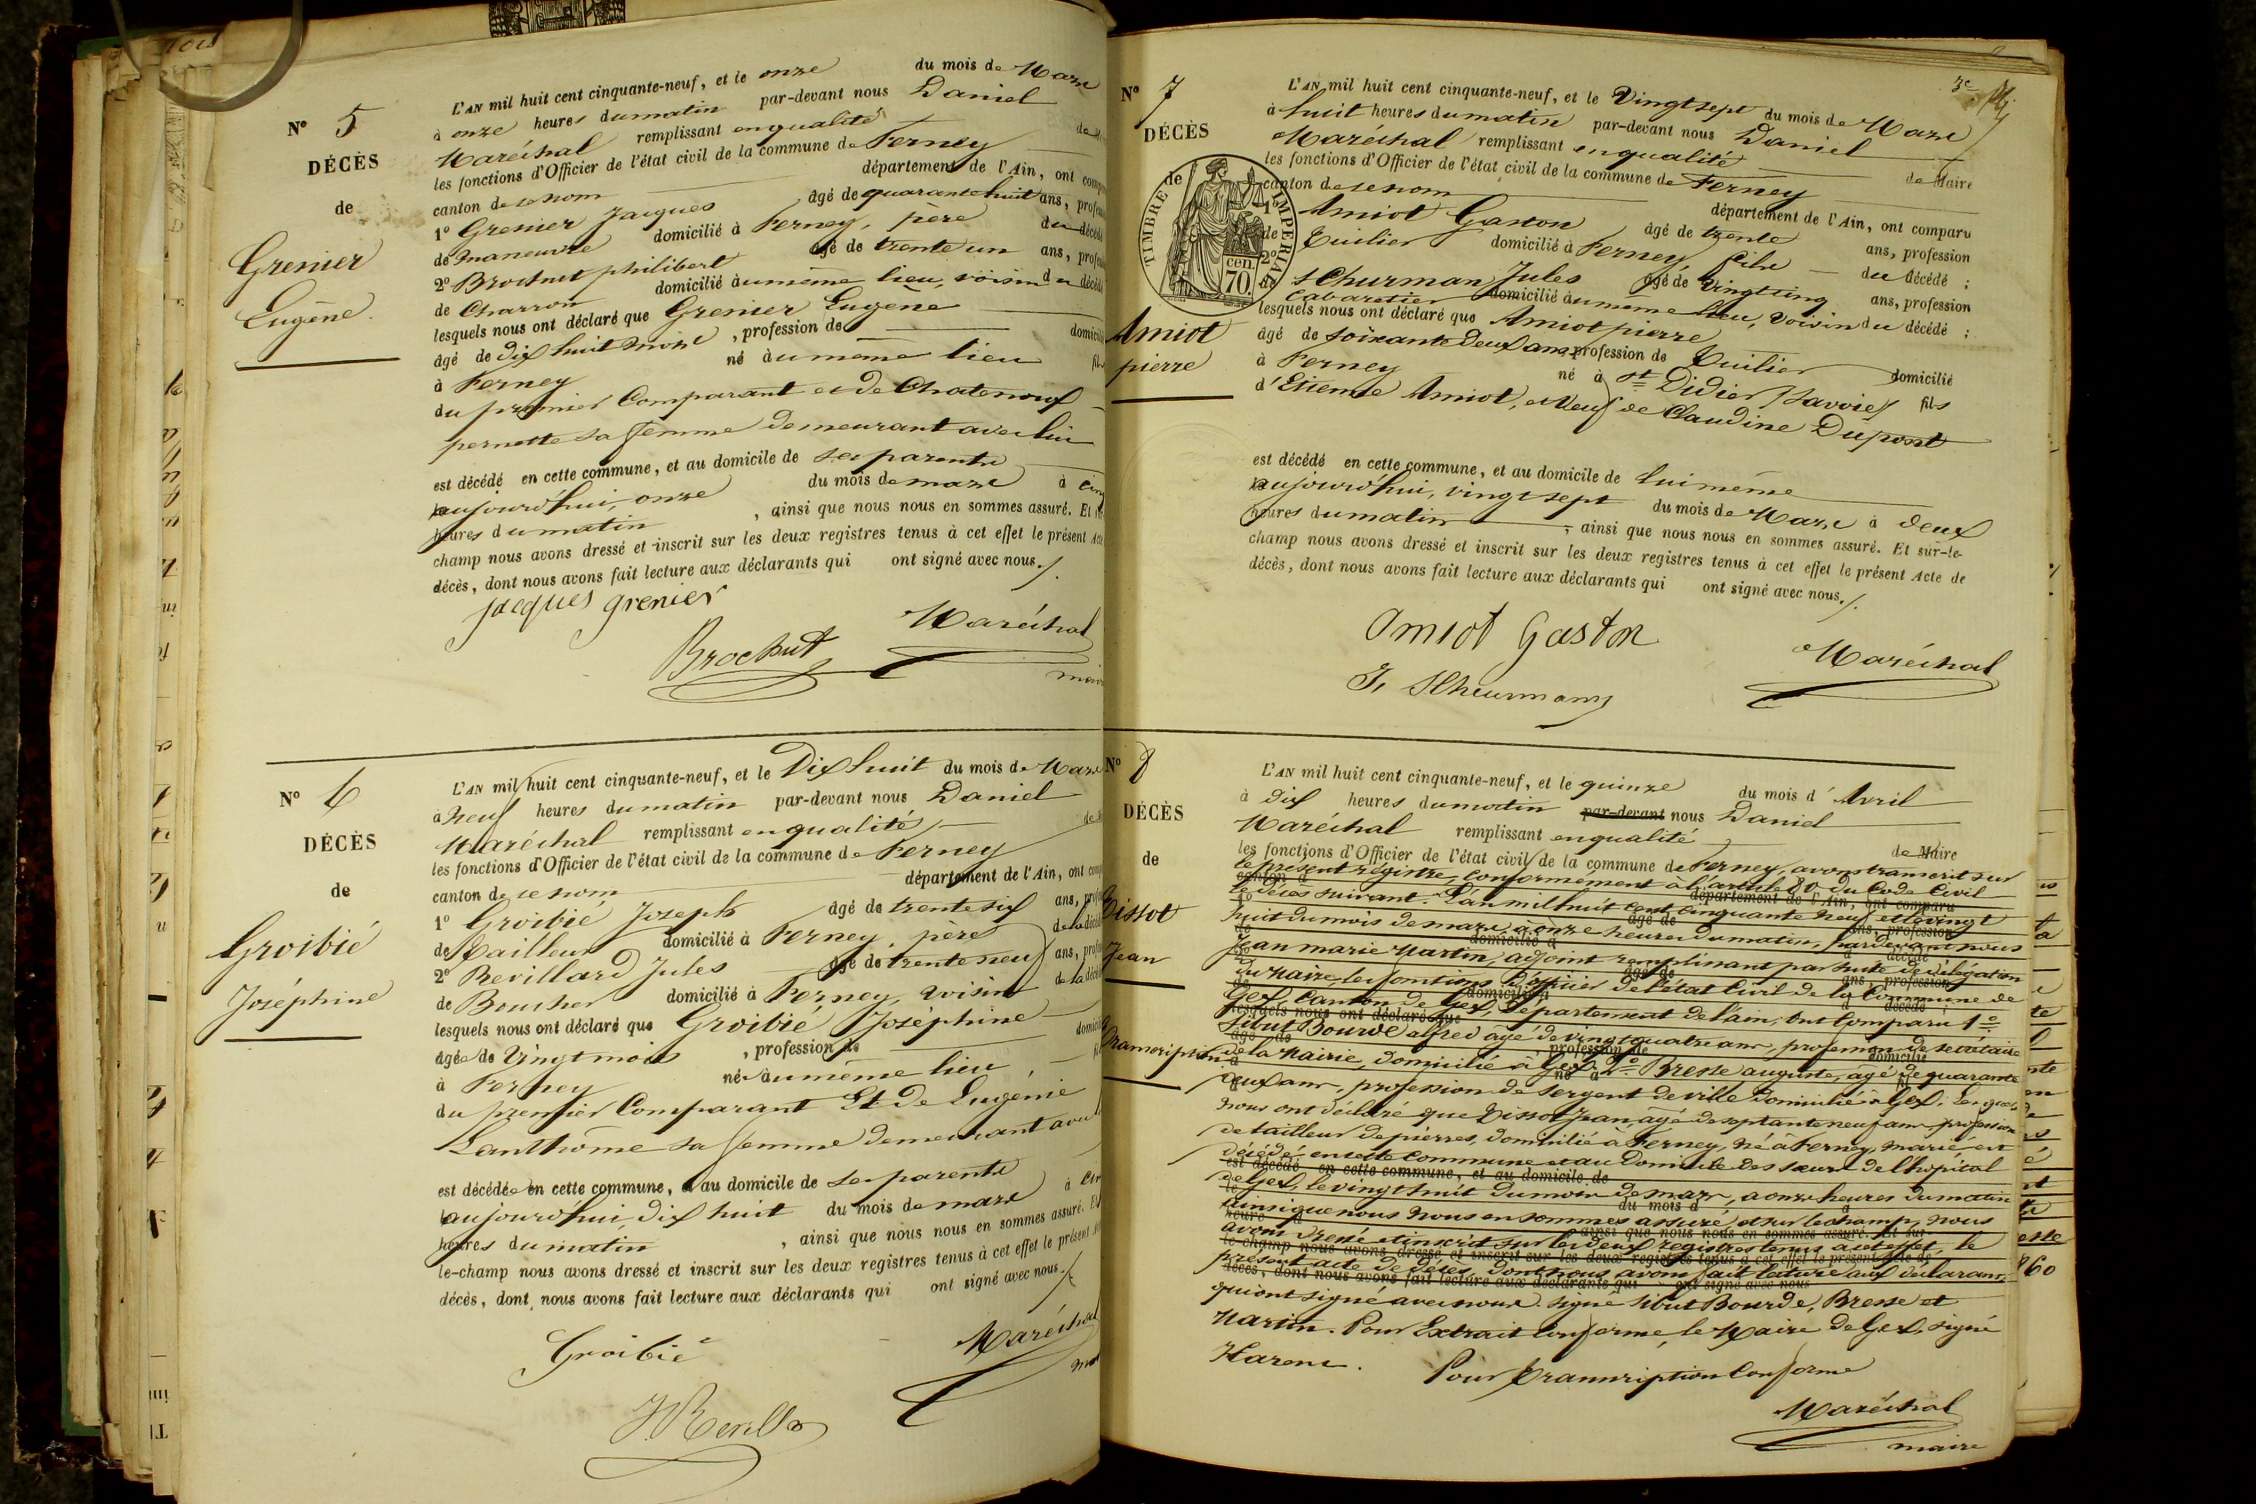 N° 5
DÉCÈS
de
Grenier
Eugène.
L'AN mil huit cent cinquante-neuf, et le onze du mois de Mars
à onze heures du matin par-devant nous Daniel
Maréchal remplissant en qualité
les fonctions d'Officier de l'état civil de la commune de Ferney
canton de ce nom département de l'Ain, ont comp
1° Grenier Jacques âgé de quarante huit ans, profes
de maneuvre domicilié à Ferney, père du décédé
2° Brochut philibert âgé de trente un ans, profes
de Charron domicilié au même lieu, voisin du décédé
lesquels nous ont déclaré que Grenier Eugène
âgé de dix huit mois , profession de domicilié
à Ferney né au même lieu fils
du premier Comparant et de Chatenouf
pernette sa femme demeurant avec lui
est décédé en cette commune, et au domicile de ses parents
aujourd'hui, onze du mois de mars à cinq
heures du matin , ainsi que nous nous en sommes assuré. Et
champ nous avons dressé et inscrit sur les deux registres tenus à cet effet le présent Acte
décès, dont nous avons fait lecture aux déclarants qui ont signé avec nous./.
Jacques Grenier
Brochut
Maréchal
N° 6
DÉCÈS
de
Groibié
Joséphine
L'AN mil huit cent cinquante-neuf, et le Dix huit du mois de Mars
à Neuf heures du matin par-devant nous Daniel
Maréchal remplissant en qualité
les fonctions d'Officier de l'état civil de la commune de Ferney
canton de ce nom département de l'Ain, ont comp
1° Groibié Joseph âgé de trente six ans, profes
de Tailleur domicilié à Ferney, père de la décédée
2° Revillard Jules âgé de trente neuf ans, profes
de Boucher domicilié à Ferney, voisin de la décédée
lesquels nous ont déclaré que Groibié Joséphine
âgée de Vingt mois , profession de domicilié
à Ferney née au même lieu
du premier Comparant Et de Eugénie
Lanthome sa femme demeurant avec
est décédée en cette commune, et au domicile de ses parents
aujourd'hui, dix huit du mois de mars à
heures du matin , ainsi que nous nous en sommes assuré. Et
le-champ nous avons dressé et inscrit sur les deux registres tenus à cet effet le présent
décès, dont nous avons fait lecture aux déclarants qui ont signé avec nous./.
Groibié
Maréchal
N° 7
DÉCÈS
de
TIMBRE IMPERIAL
70 cen.
Amiot
pierre
L'AN mil huit cent cinquante-neuf, et le Vingt sept du mois de Mars
à huit heures du matin par-devant nous Daniel
Maréchal remplissant en qualité de Maire
les fonctions d'Officier de l'état civil de la commune de Ferney
canton de ce nom département de l'Ain, ont comparu
1° Amiot Gaston âgé de trente ans, profession
de Tuilier domicilié à Ferney, fils du décédé ;
2° Schurman Jules âgé de Vingt cinq ans, profession
Cabaretier domicilié au même lieu, voisin du décédé ;
lesquels nous ont déclaré que Amiot pierre
âgé de soixante deux ans, profession de Tuilier domicilié
à Ferney né à St Didier (Savoie) fils
d'Etienne Amiot, et Veuf de Claudine Dupont
est décédé en cette commune, et au domicile de lui même
aujourd'hui, vingt sept du mois de Mars à deux
heures du matin , ainsi que nous nous en sommes assuré. Et sur-le-
champ nous avons dressé et inscrit sur les deux registres tenus à cet effet le présent Acte de
décès, dont nous avons fait lecture aux déclarants qui ont signé avec nous./.
Amiot Gaston
Maréchal
N° 8
DÉCÈS
de
Tissot
Jean
Transcription
L'AN mil huit cent cinquante-neuf, et le quinze du mois d'Avril
à dix heures du matin par-devant nous Daniel
Maréchal remplissant en qualité de Maire
les fonctions d'Officier de l'état civil de la commune de Ferney, avons transcrit sur
le présent régistre, conformément à l'article 80 du Code Civil
le décès suivant. L'an mil huit cent cinquante neuf et le vingt
huit du mois de mars à onze heures du matin, pardevant nous
Jean marie Martin, adjoint remplissant par suite de délégation
du Maire, les fonctions d'officier de l'état Civil de la Commune de
Gex, Canton de Gex, Département de l'ain, ont Comparu 1°
Sibut Bourde alfred âgé de vingt quatre ans, profession de secrétaire
de la Mairie, domicilié à Gex 2° Bresse auguste, agé de quarante
deux ans, profession de sergent de ville domicilié à Gex. Lesquels
nous ont déclaré que Tissot Jean, agé de septante neuf ans profession
de tailleur de pierres, domicilié à Ferney, né à Ferney, marié est
décédé en cette Commune et au Domicile des sœurs de l'hôpital
de Gex, le vingt huit du mois de mars, à onze heures du matin
ainsi que nous nous en sommes assuré, et sur le champ, nous
avons dressé et inscrit sur les deux registres tenus à cet effet, le
présent acte de décès, dont nous avons fait lecture aux déclarants
qui ont signé avec nous. signé Sibut Bourde, Bresse et
Martin. Pour Extrait Conforme, le Maire de Gex, signé
Harent.
Pour Transcription Conforme
Maréchal
maire